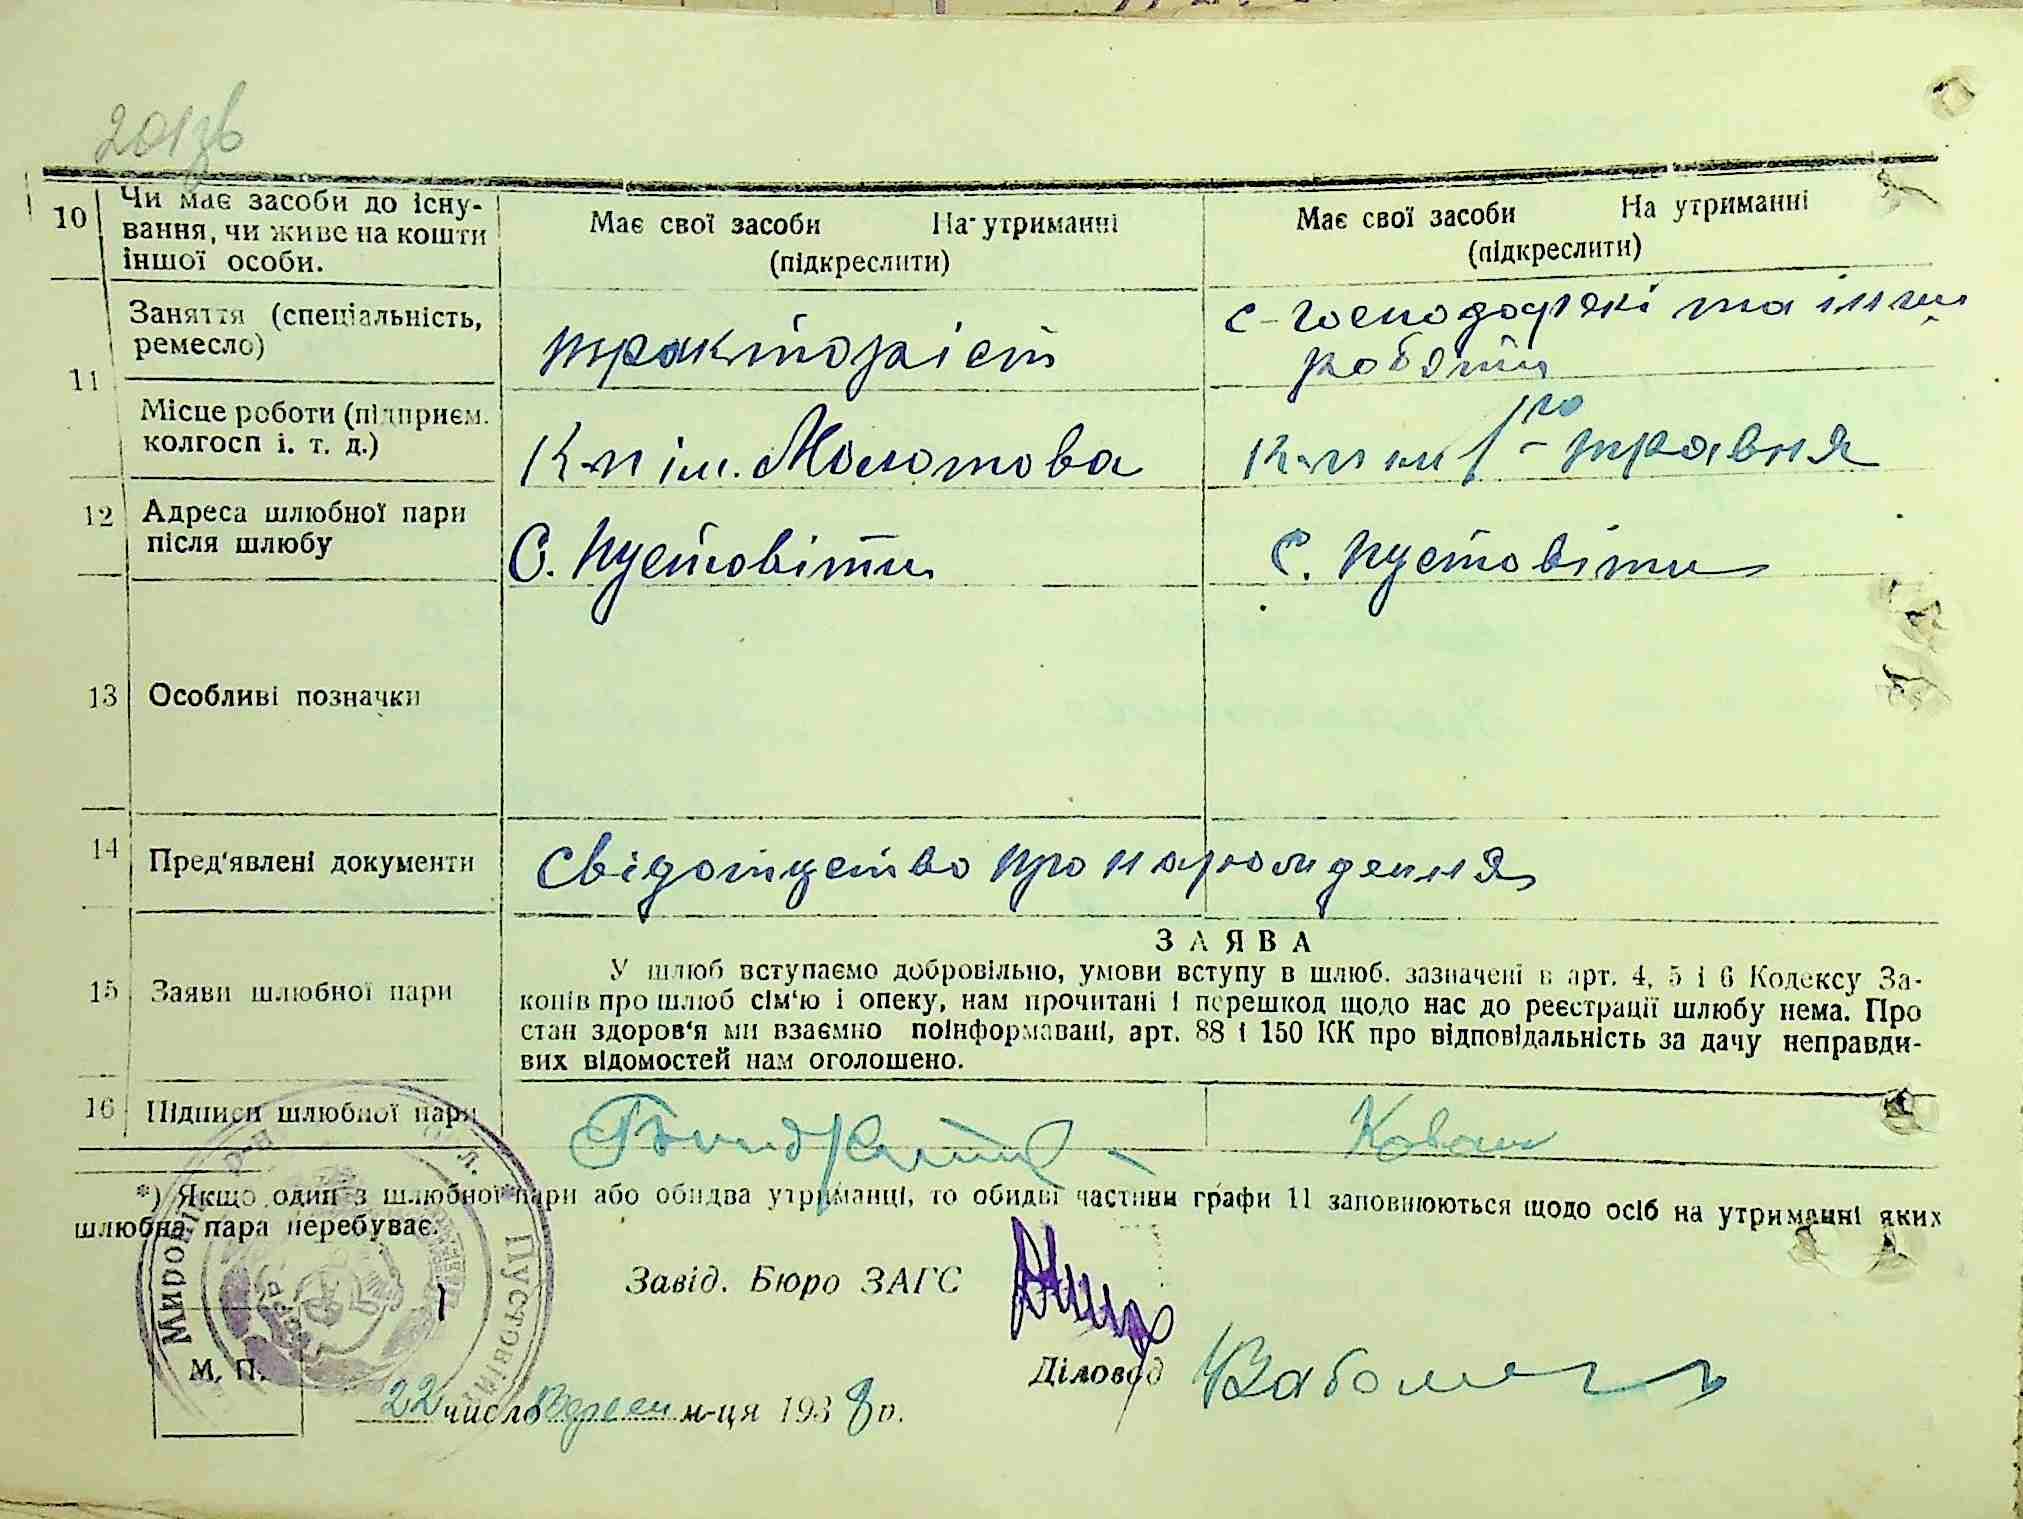 201зв
10 Чи має засоби до існу-
вання, чи живе на кошти
іншої особи.
Має свої засоби На утриманні
(підкреслити)
Має свої засоби На утриманні
(підкреслити)
11 Заняття (спеціальність,
ремесло)
тракторіст
с-господофякі та інш
робяти
Місце роботи (підприєм.
колгосп і. т. д.)
К-п ім. Молотова
К-п ім 1го - травня
12 Адреса шлюбної пари
після шлюбу
С. Пустовіти
С. Пустовіти
13 Особливі позначки
14 Пред'явлені документи
Свідотцство про народження
15 Заяви шлюбної пари
ЗАЯВА
У шлюб вступаємо добровільно, умови вступу в шлюб. зазначені в арт. 4, 5 і 6 Кодексу За-
конів про шлюб сім'ю і опеку, нам прочитані і перешкод щодо нас до реєстрації шлюбу нема. Про
стан здоров'я ми взаємно поінформавані, арт. 88 і 150 КК про відповідальність за дачу неправди-
вих відомостей нам оголошено.
16 Підписи шлюбної пари
Коваль
*) Якщо один з шлюбної пари або обидва утриманці, то обидві частини графи 11 заповнюються щодо осіб на утриманні яких
шлюбна пара перебуває.
Завід. Бюро ЗАГС
М. П.
Діловод
22 число Вресн м-ця 1938 р.